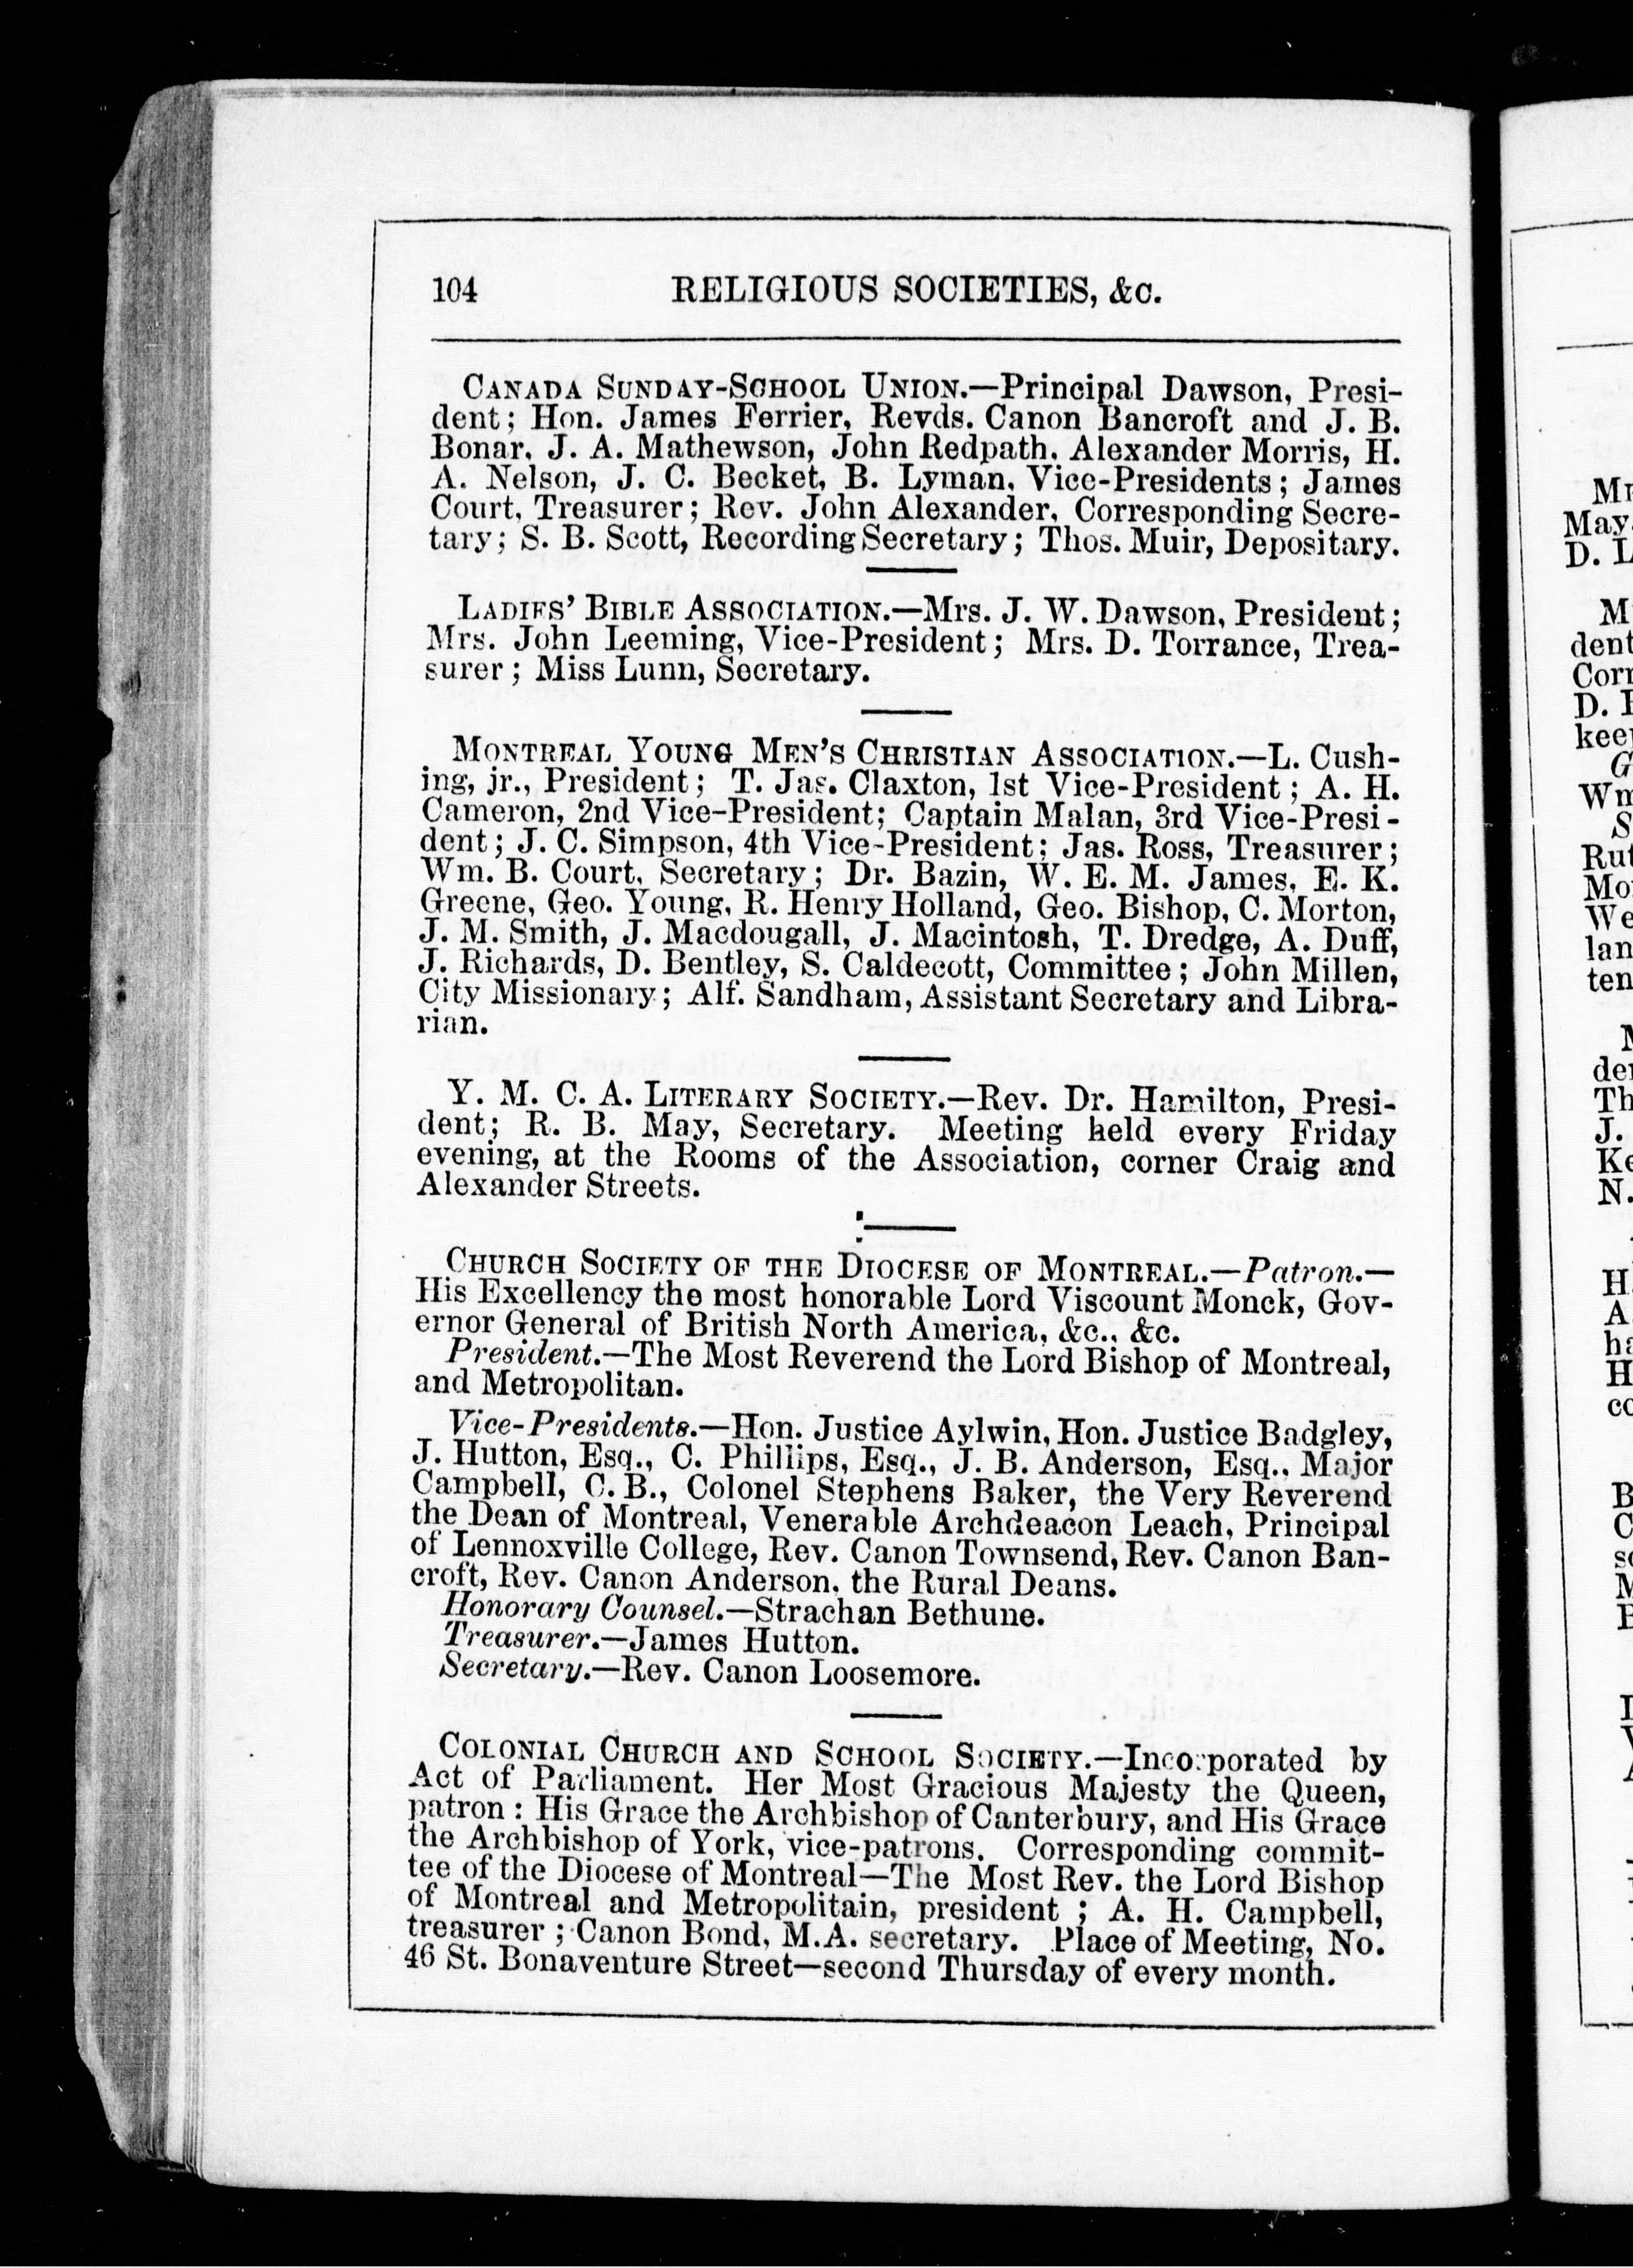 104 RELIGIOUS SOCIETIES, &c.
CANADA SUNDAY-SCHOOL UNION.—Principal Dawson, Presi-
dent; Hon. James Ferrier, Revds. Canon Bancroft and J. B.
Bonar, J. A. Mathewson, John Redpath, Alexander Morris, H.
A. Nelson, J. C. Becket, B. Lyman, Vice-Presidents; James
Court, Treasurer; Rev. John Alexander, Corresponding Secre-
tary; S. B. Scott, Recording Secretary; Thos. Muir, Depositary.
LADIES' BIBLE ASSOCIATION.—Mrs. J. W. Dawson, President;
Mrs. John Leeming, Vice-President; Mrs. D. Torrance, Trea-
surer; Miss Lunn, Secretary.
MONTREAL YOUNG MEN'S CHRISTIAN ASSOCIATION.—L. Cush-
ing, jr., President; T. Jas. Claxton, 1st Vice-President; A. H.
Cameron, 2nd Vice-President; Captain Malan, 3rd Vice-Presi-
dent; J. C. Simpson, 4th Vice-President; Jas. Ross, Treasurer;
Wm. B. Court, Secretary; Dr. Bazin, W. E. M. James, E. K.
Greene, Geo. Young, R. Henry Holland, Geo. Bishop, C. Morton,
J. M. Smith, J. Macdougall, J. Macintosh, T. Dredge, A. Duff,
J. Richards, D. Bentley, S. Caldecott, Committee; John Millen,
City Missionary; Alf. Sandham, Assistant Secretary and Libra-
rian.
Y. M. C. A. LITERARY SOCIETY.—Rev. Dr. Hamilton, Presi-
dent; R. B. May, Secretary. Meeting held every Friday
evening, at the Rooms of the Association, corner Craig and
Alexander Streets.
CHURCH SOCIETY OF THE DIOCESE OF MONTREAL.—Patron.—
His Excellency the most honorable Lord Viscount Monck, Gov-
ernor General of British North America, &c., &c.
President.—The Most Reverend the Lord Bishop of Montreal,
and Metropolitan.
Vice-Presidents.—Hon. Justice Aylwin, Hon. Justice Badgley,
J. Hutton, Esq., C. Phillips, Esq., J. B. Anderson, Esq., Major
Campbell, C. B., Colonel Stephens Baker, the Very Reverend
the Dean of Montreal, Venerable Archdeacon Leach, Principal
of Lennoxville College, Rev. Canon Townsend, Rev. Canon Ban-
croft, Rev. Canon Anderson, the Rural Deans.
Honorary Counsel.—Strachan Bethune.
Treasurer.—James Hutton.
Secretary.—Rev. Canon Loosemore.
COLONIAL CHURCH AND SCHOOL SOCIETY.—Incorporated by
Act of Parliament. Her Most Gracious Majesty the Queen,
patron: His Grace the Archbishop of Canterbury, and His Grace
the Archbishop of York, vice-patrons. Corresponding commit-
tee of the Diocese of Montreal—The Most Rev. the Lord Bishop
of Montreal and Metropolitain, president ; A. H. Campbell,
treasurer ; Canon Bond, M.A. secretary. Place of Meeting, No.
46 St. Bonaventure Street—second Thursday of every month.